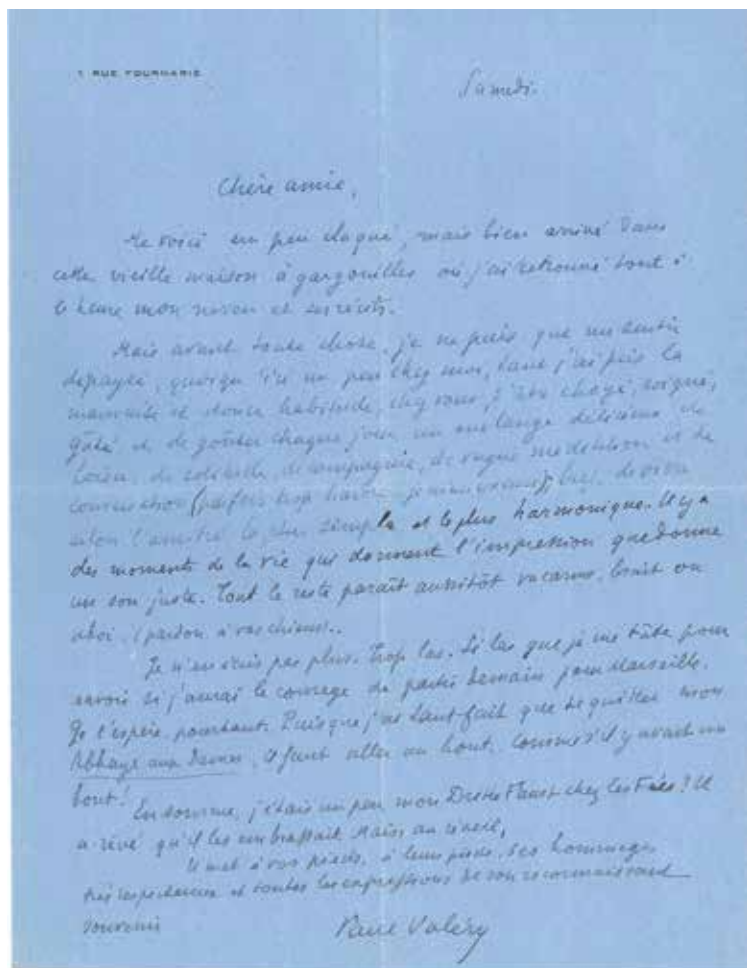 1 RUE FOURNARIE
Samedi.
Chère amie,
Me voici un peu claqué, mais bien arrivé dans
cette vieille maison à gargouilles où j'ai retrouvé tout à
l'heure mon neveu et
Mais avant toute chose, je ne puis que me sentir
dépaysé, quoique ici un peu chez moi, tant j'ai pris la
mauvaise et douce habitude, chez vous, d'être choyé, soigné,
gâté et de goûter chaque jour un mélange délicieux de
loisir, de solitude, de compagnie, de vague méditation et de
conversation (parfois trop
selon l'amitié la plus simple et la plus harmonique. Il y a
des moments de la vie qui donnent l'impression que donne
un son juste. Tout le reste paraît aussitôt vacarme, bruit ou
aboi, (pardon à vos chiens..
Je n'en écris pas plus. Trop las. Si las que je me tâte pour
savoir si j'aurai le courage de partir demain pour Marseille.
Je l'espère, pourtant. Puisque j'ai tant fait que de quitter mon
Abbaye aux Dames, il faut aller au bout. Comme s'il y avait un
bout!
En somme, j'étais un peu mon Dr Faust chez les Fées! Il
a rêvé qu'il les embrassait Mais au réveil,
Il met à vos pieds, à leurs pieds, ses hommages
très respectueux et toutes les expressions de son reconnaissant
souvenir
Paul Valéry